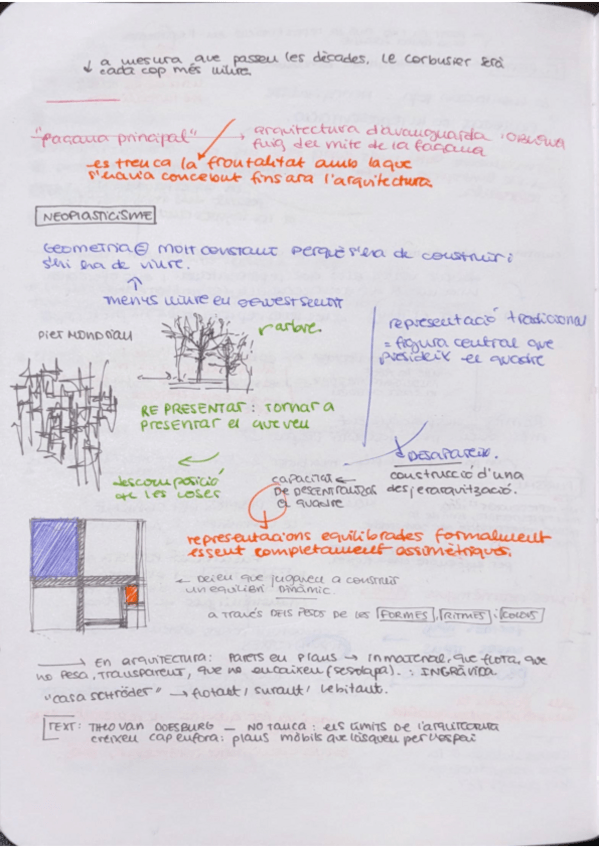 ↓ a mesura que passen les dècades, le corbusier serà
cada cop més lliure.
"façana principal" → arquitectura d'avanguarda
fuig del mite de la façana
- es trenca la frontalitat amb la que
s'havia concebut fins ara l'arquitectura
NEOPLASTICISME
GEOMETRIA molt constant perquè s'ha de construir i
s'hi ha de viure.
↑
menys lliure en aquest sentit
PIET MONDRIAN
arbre.
RE PRESENTAR: TORNAR A
PRESENTAR el que veu
descomposició
de les coses
representació tradicional
= figura central que
presideix el quadre
DESAPAREIX.
construcció d'una
desjerarquització.
capacitat ←
DE DESCENTRALITZAR
el quadre
representacions equilibrades formalment
essent completament assimètriques.
← Deien que jugaven a construir
un equilibri DINÀMIC.
a través dels pesos de les FORMES, RITMES i COLORS
→ En arquitectura: PARETS en plans → Inmaterial, que flota, que
no pesa, transparent, que no encaixen (se solapa). ∴ INGRÀVIDA
"casa SCHRÖDER" → flotant / surant / levitant.
TEXT: THEO VAN DOESBURG — NO TANCA: els límits de l'arquitectura
creixen cap enfora: plans mòbils que llisquen per l'espai